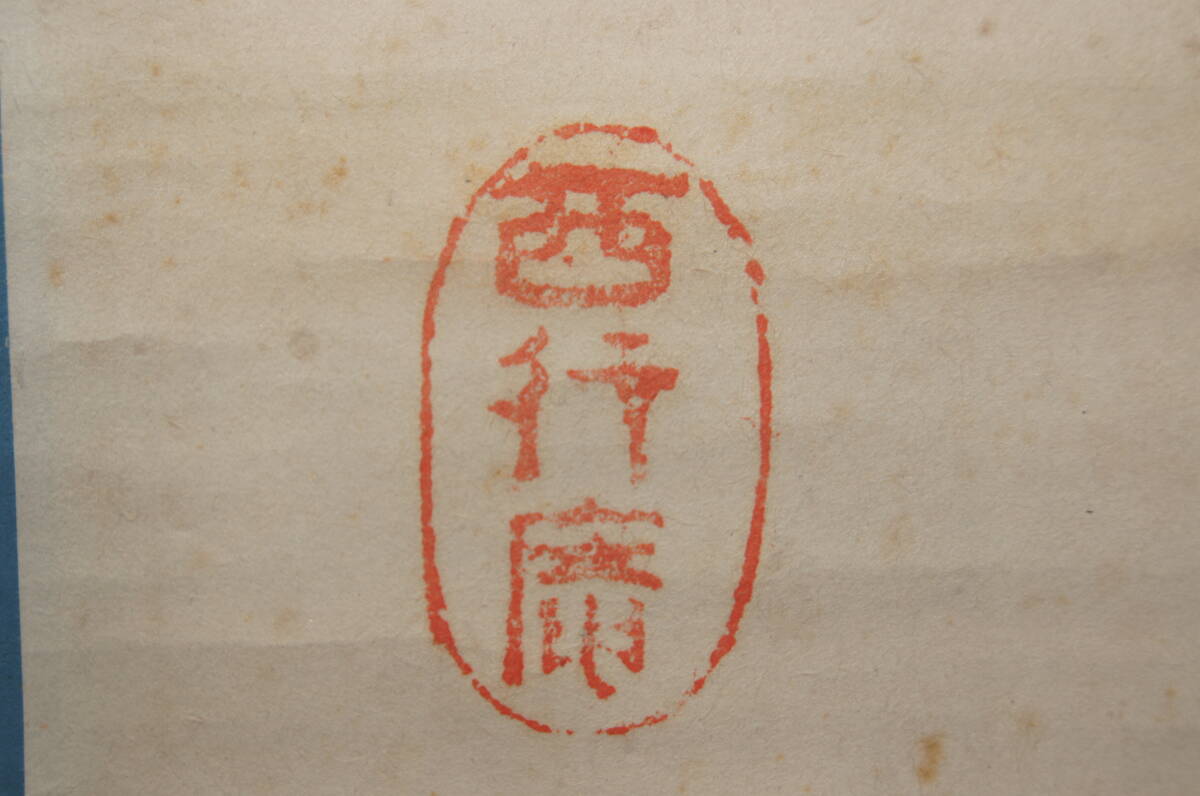 西行庵